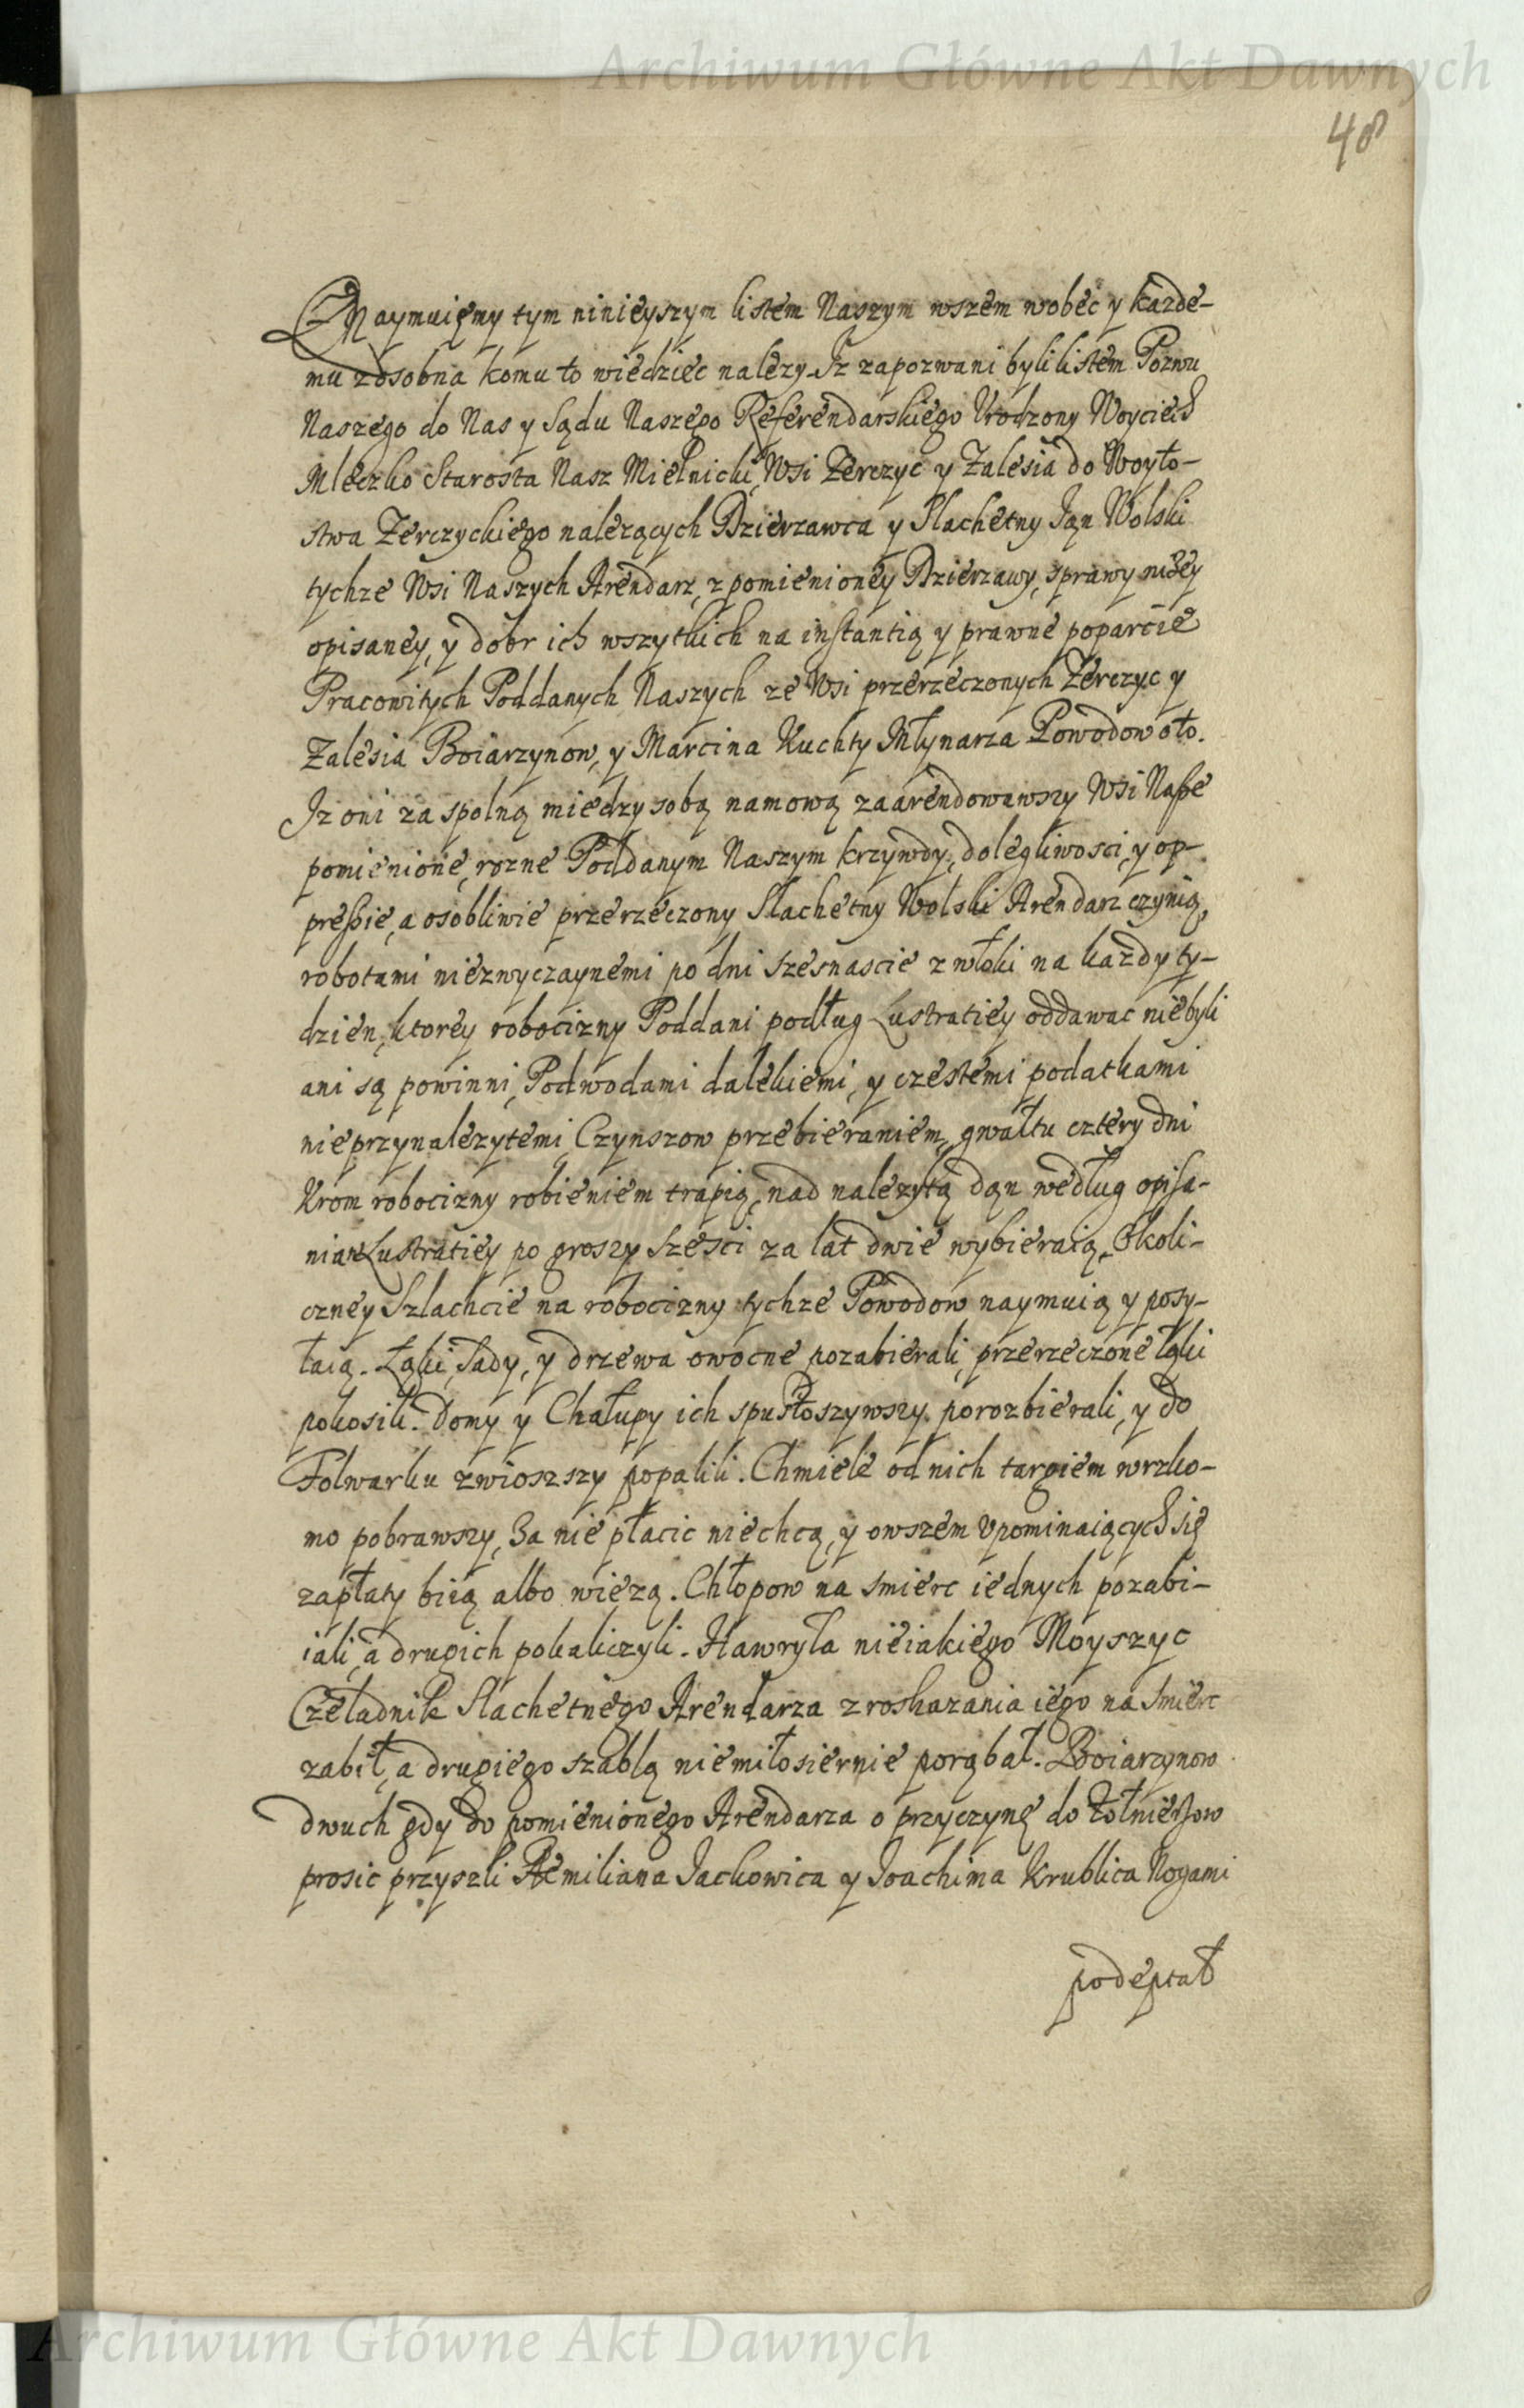 Archiwum Główne Akt Dawnych
48
Oznaymuiemy tym ninieyszym listem Naszym wszem wobec y kazde-
mu zosobna komu to wiedziec nalezy. Iz zapozwani byli listem Pozwu
Naszego do Nas y Sądu Naszego Referendarskiego Vrodzony Woyciech
Mleczko Starosta Nasz Mielnicki, Wsi Zerczyc y Zalesia do Woyto-
stwa Zerczyckiego nalezących Dzierzawca y Slachetny Jan Wolski
tychze Wsi Naszych Arendarz, z pomienioney Dzierzawy, sprawy nizey
opisaney, y dobr ich wszytkich na instantią y prawne poparcie
Pracowitych Poddanych Naszych ze Wsi przerzeczonych Zerczyc y
Zalesia Boiarzynow, y Marcina Kuchty Młynarza Powodow oto.
Iz oni za spolną miedzy sobą namową zaarendowawszy Wsi Naße
pomienione, rozne Poddanym Naszym krzywdy, dolegliwosci, y op-
preßie, a osobliwie przerzeczony Slachetny Wolski Arendarz czynią,
robotami niezwyczaynemi po dni szesnascie z włoki na kazdy ty-
dzien, ktorey robocizny Poddani podług Lustratiey oddawac niebyli
ani są powinni, Podwodami dalekiemi, y czestemi podatkami
nieprzynalezytemi, Czynszow przebieraniem, gwałtu cztery dni
Krom robocizny robieniem trapią, nad nalezytą dan według opisa-
nia Lustratiey po groszy szesci za lat dwie wybieraią, Okoli-
czney Szlachcie na robocizny tychze Powodow naymuią y posy-
łaią. Łąki, Sady, y drzewa owocne pozabierali, przerzeczone łąki
pokosili. Domy y Chałupy ich spustoszywszy porozbierali, y do
Folwarku zwioszszy popalili. Chmiele od nich targiem wrzko-
mo pobrawszy, Za nie płacic niechcą, y owszem vpominaiących się
zapłaty biią albo wiezą. Chłopow na smierc iednych pozabi-
iali, a drugich pokaliczyli. Hawryła nieiakiego Moyszyc
Czeladnik Slachetnego Arendarza z roskazania iego na smierc
zabił, a drugiego szablą niemiłosiernie porąbał. Boiarzynow
dwuch gdy do pomienionego Arendarza o przyczynę do Zołnierzow
prosic przyszli Aemiliana Jackowica y Joachima Krublica Nogami
podeptał
Archiwum Główne Akt Dawnych